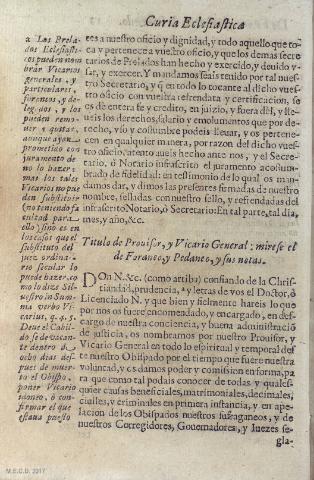 Curia Eclesiastica
a Los Prela-
dos Eclesiasti-
cos pueden nom
brar Vicarios
generales, y
particulares,
foraneos, y de-
legados, y los
pueden remo-
uer a quitar,
aunque ayan
prometido con
juramento de
no lo hazer;
mas los tales
Vicarios no pue
den substituir
(no teniendo fa
cultad para
ello) sino es en
los casos que el
substituto del
juez ordina-
rio secular lo
puede hazer, co
mo lo dize Sil-
uestro in Sum
ma verbo Vi-
carius, q. 4. §
Deue el Cabil-
do sede vacan-
te dentro de
ocho dias des-
pues de muer-
to el Obispo,
poner Vicario
idoneo, ò con-
firmar el que
estaua puesto
ctes a nuestro oficio y dignidad, y todo aquello que to-
ca y pertenece a vuestro oficio, y que los demas Secre
tarios de Prelados han hecho y exercido, y deuido v-
sar, y exercer. Y mandamos seais tenido por tal nues-
tro Secretario, y q̃ en todo lo tocante al dicho vues-
tro oficio con vuestra refrendata y certificacion, se
os dè entera fe y credito, en juizio, y fuera dèl, y lle-
ueis los derechos, salario y emolumentos que por de-
recho, vso y costumbre podeis lleuar, y os pertene-
cen en qualquier manera, por razon del dicho vues-
tro oficio, atento aueis hecho ante nos, y el Secre-
tario, ò Notario infrascrito el juramento acostum-
brado de fidelidad: en testimonio de lo qual os man-
damos dar, y dimos las presentes firmadas de nuestro
nombre, selladas con nuestro sello, y refrendadas del
infrascrito Notario, ò Secretario: En tal parte, tal dia,
mes, y año, &c.
Titulo de Prouisor, y Vicario General; mirese el
de Foraneo, y Pedaneo, y sus notas.
DOn N. &c. (como arriba) confiando de la Chris-
tiandad, prudencia, y letras de vos el Doctor, ò
Licenciado N. y que bien y fielmente hareis lo que
por nos os fuere encomendado, y encargado, en des-
cargo de nuestra conciencia, y buena administració
de justicia, os nombramos por nuestro Prouisor, y
Vicario General en todo lo espiritual y temporal des-
te nuestro Obispado por el tiempo que fuere nuestra
voluntad, y os damos poder y comission en forma, pa
ra que como tal podais conocer de todas y quales-
quier causas beneficiales, matrimoniales, decimales,
ciuiles, y criminales en primera instancia, y en ape-
lacion de los Obispados nuestros sufraganeos, y de
nuestros Corregidores, Gouernadores, y Iuezes se-
gla-
M.E.C.D. 2017